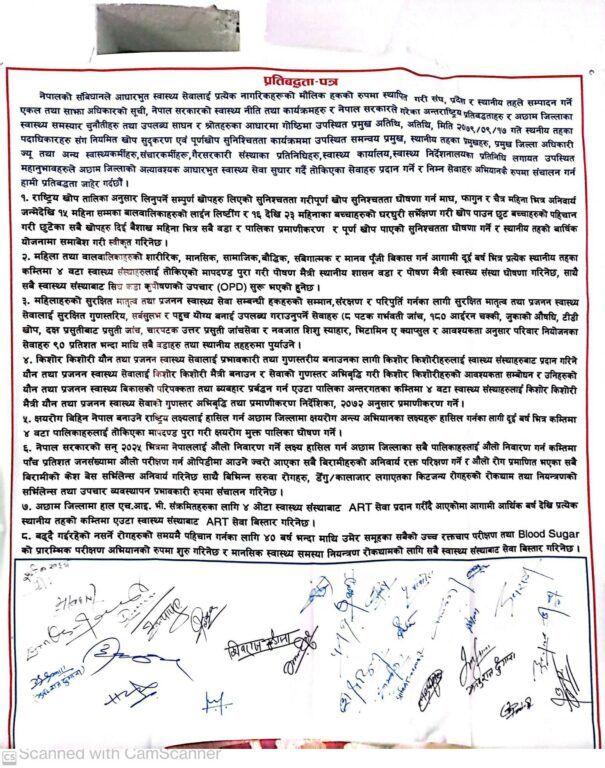 प्रतिबद्धता-पत्र
नेपालको संबिधानले आधारभुत स्वास्थ्य सेवालाई प्रत्येक नागरिकहरुको मौलिक हकको रुपमा स्थापित गरी संघ, प्रदेश र स्थानीय तहले सम्पादन गर्ने
एकल तथा साझा अधिकारको सूची, नेपाल सरकारको स्वास्थ्य नीति तथा कार्यक्रमहरु र नेपाल सरकारले गरेका अन्तराष्ट्रिय प्रतिबद्धताहरु र अछाम जिल्लाका
स्वास्थ्य समस्यार चुनौतीहरु तथा उपलब्ध साधन र श्रोतहरुका आधारमा गोष्ठिमा उपस्थित प्रमुख अतिथि, अतिथि, मिति २०७९/०९/१७ गते स्थानीय तहका
पदाधिकारहरु संग नियमित खोप सुदृकरण एवं पूर्णखोप सुनिश्चितता कार्यक्रममा उपस्थित समन्वय प्रमुख, स्थानीय तहका प्रमुखहरु, प्रमुख जिल्ला अधिकारी
ज्यू तथा अन्य स्वास्थ्यकर्मीहरु,संचारकर्मीहरु,गैरसरकारी संस्थाका प्रतिनिधिहरु,स्वास्थ्य कार्यालय,स्वास्थ्य निर्देशनालयका प्रतिनिधि लगायत उपस्थित
महानुभावहरुले अछाम जिल्लाको अत्यावश्यक आधारभुत स्वास्थ्य सेवा सुधार गर्दै तोकिएका सेवाहरु प्रदान गर्ने र निम्न सेवाहरु अभियानकै रुपमा संचालन गर्न
हामी प्रतिबद्धता जाहेर गर्दछौं ।
१. राष्ट्रिय खोप तालिका अनुसार लिनुपर्ने सम्पुर्ण खोपहरु लिएको सुनिश्चितता गरीपूर्ण खोप सुनिश्चितता घोषणा गर्न माघ, फागुन र चैत्र महिना भित्र अनिवार्य
जन्मेदेखि १५ महिना सम्मका बालबालिकाहरुको लाईन लिष्टिंग र १६ देखि २३ महिनाका बच्चाहरुको घरघुरी सर्भेक्षण गरी खोप पाउन छुट बच्चाहरुको पहिचान
गरी छुटेका सबै खोपहरु दिई बैशाख महिना भित्र सबै वडा र पालिका प्रमाणीकरण र पूर्ण खोप पाएको सुनिश्चितता घोषणा गर्ने र स्थानीय तहको बार्षिक
योजनामा समाबेश गरी स्वीकृत गरिनेछ ।
२. महिला तथा बालबालिकाहरुको शारीरिक, मानसिक, सामाजिक,बौद्धिक, संबेगात्मक र मानव पूँजी बिकास गर्न आगामी दुई बर्ष भित्र प्रत्येक स्थानीय तहका
कम्तिमा ४ वटा स्वास्थ्य संस्थाहरुलाई तोकिएका मापदण्ड पुरा गरी पोषण मैत्री स्थानीय शासन वडा र पोषण मैत्री स्वास्थ्य संस्था घोषणा गरिनेछ, साथै
सबै स्वास्थ्य संस्थाबाट कुपोषणको उपचार (OPD) सुरू भएको हुनेछ ।
३. महिलाहरुको सुरक्षित मातृत्व तथा प्रजनन स्वास्थ्य सेवा सम्बन्धी हकहरुको सम्मान,संरक्षण र परिपुर्ति गर्नका लागी सुरक्षित मातृत्व तथा प्रजनन स्वास्थ्य
सेवालाई सुरक्षित गुणस्तरिय, सर्वसुलभ र पहुच योग्य बनाई उपलब्ध गराउनुपर्ने सेवाहरु (८ पटक गर्भवती जांच, १८० आईरन चक्की, जुकाको औषधि, टीडी
खोप, दक्ष प्रसुतीबाट प्रसुती जांच, चारपटक उत्तर प्रसुती जांचसेवा र नवजात शिशु स्याहार, भिटामिन ए क्याप्सुल र आवश्यकता अनुसार परिवार नियोजनका
सेवाहरु ९० प्रतिशत भन्दा माथि सबै वडाहरु तथा स्थानीय तहहरुमा पुर्याउने ।
४. किशोर किशोरी यौन तथा प्रजनन स्वास्थ्य सेवालाई प्रभावकारी तथा गुणस्तरीय बनाउनका लागी किशोर किशोरीहरुलाई स्वास्थ्य संस्थाहरुबाट प्रदान गरिने
यौन तथा प्रजनन स्वास्थ्य सेवालाई किशोर किशोरी मैत्री बनाउन र सेवाको गुणस्तर अभिबृद्धि गरी किशोर किशोरीहरुको आवश्यकता सम्बोधन र उनिहरुको
यौन तथा प्रजनन स्वास्थ्य बिकासको परिपक्कता र ब्यबहार प्रर्बद्धन गर्न एउटा पालिका अन्तरगतका कम्तिमा ४ वटा स्वास्थ्य संस्थाहरुलाई किशोर किशोरी
मैत्री यौन तथा प्रजनन स्वास्थ्य सेवाको गुणस्तर अभिबृद्धि तथा प्रमाणीकरण निर्देशिका, २०७२ अनुसार प्रमाणीकरण गर्ने ।
५. क्षयरोग बिहिन नेपाल बनाउने राष्ट्रिय लक्ष्यलाई हासिल गर्न अछाम जिल्लामा क्षयरोग अन्त्य अभियानका लक्ष्यहरु हासिल गर्नका लागी दुई बर्ष भित्र कम्तिमा
४ वटा पालिकाहरुलाई तोकिएका मापदण्ड पुरा गरी क्षयरोग मुक्त पालिका घोषणा गर्ने ।
६. नेपाल सरकारको सन् २०२५ भित्रमा नेपाललाई औलो निवारण गर्ने लक्ष्य हासिल गर्न अछाम जिल्लाका सबै पालिकाहरुलाई औलो निवारण गर्न कम्तिमा
पाँच प्रतिशत जनसंख्यामा औलो परिक्षण गर्न ओपिडीमा आउने ज्वरो आएका सबै बिरामीहरुको अनिवार्य रक्त परिक्षण गर्ने र औलो रोग प्रमाणित भएका सबै
बिरामीको केश बेस सर्भिलेन्स अनिवार्य गरिनेछ साथै बिभिन्न सरुवा रोगहरु, डेंगु/कालाजार लगाएतका किटजन्य रोगहरुको रोकथाम तथा नियन्त्रणको
सर्भिलेन्स तथा उपचार ब्यवस्थापन प्रभावकारी रुपमा संचालन गरिनेछ ।
७. अछाम जिल्लामा हाल एच.आई. भी. संक्रमितहरुका लागि ४ ओटा स्वास्थ्य संस्थाबाट ART सेवा प्रदान गरीदैं आएकोमा आगामी आर्थिक बर्ष देखि प्रत्येक
स्थानीय तहको कम्तिमा एउटा स्वास्थ्य संस्थाबाट ART सेवा बिस्तार गरिनेछ ।
८. बढ्दै गईरहेको नसर्ने रोगहरुको समयमै पहिचान गर्नका लागि ४० बर्ष भन्दा माथि उमेर समूहका सबैको उच्च रक्तचाप परीक्षण तथा Blood Sugar
को प्रारम्भिक परीक्षण अभियानको रुपमा शुरु गरिनेछ र मानसिक स्वास्थ्य समस्या नियन्त्रण रोकथामको लागि सबै स्वास्थ्य संस्थाबाट सेवा बिस्तार गरिनेछ ।
CS Scanned with CamScanner